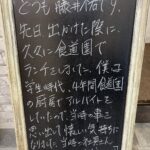 どうも藤井佑です。
先日、出かけた際に、
久々に食道園で
ランチをしました。僕は
学生時代、4年間食道園
の厨房でアルバイトを
していたので、当時の事を
思い出して懐しい気持ちに
なりました。当時の社員さん